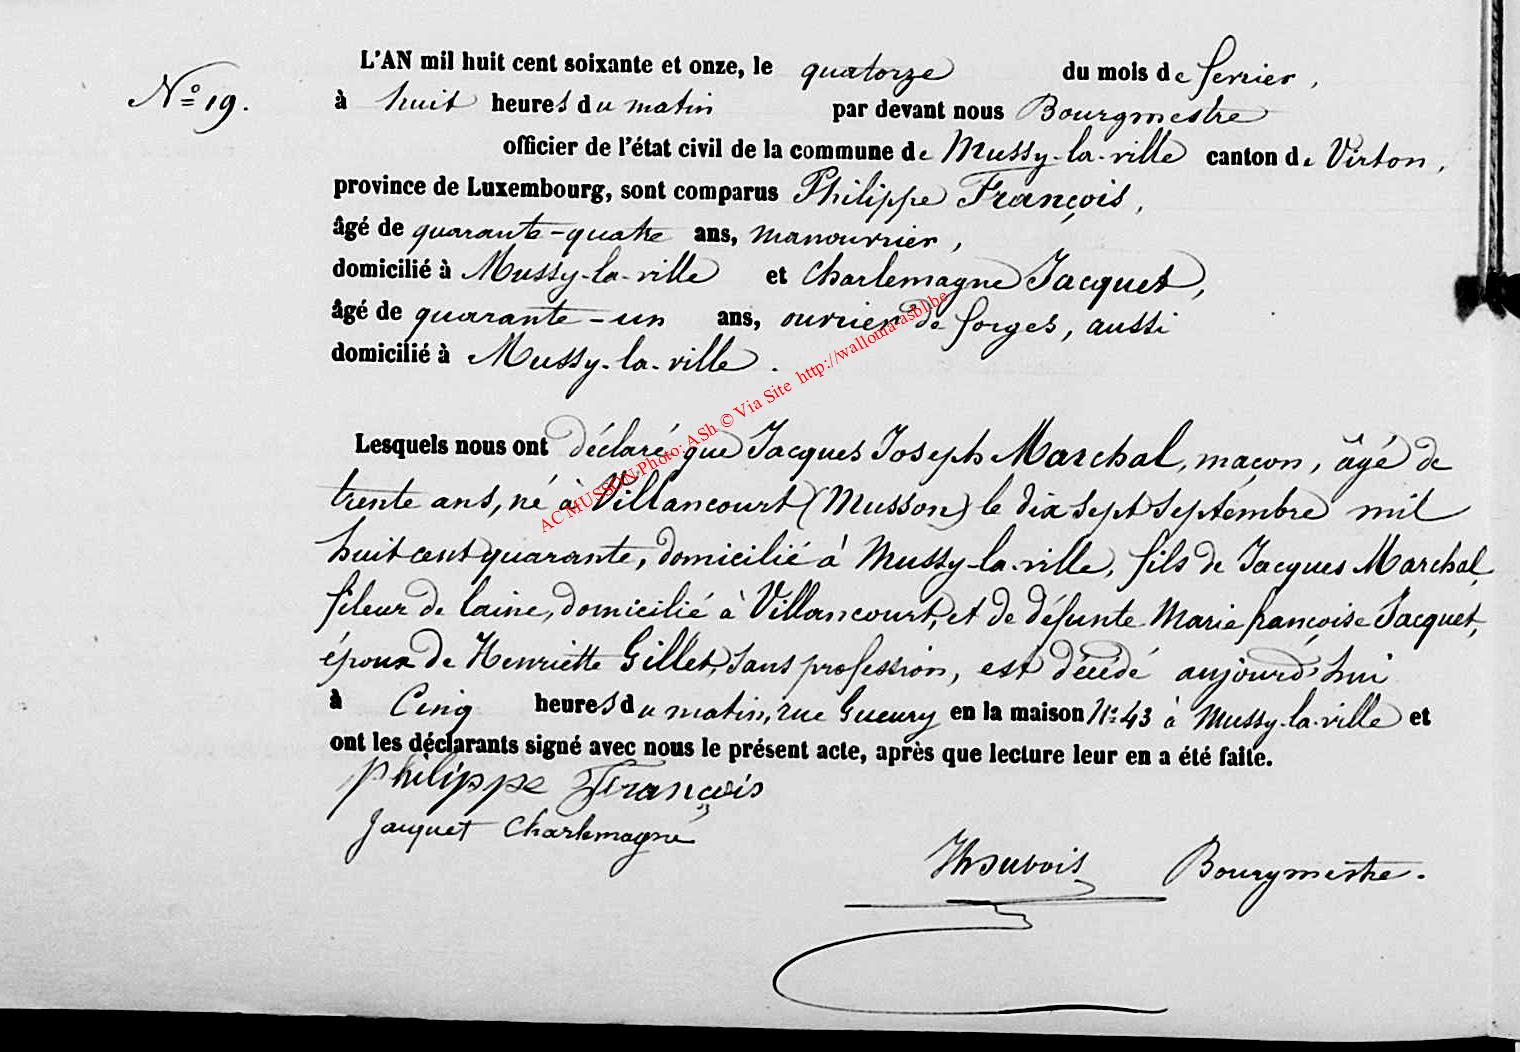 L'AN mil huit cent soixante et onze, le quatorze du mois de fevrier,
No 19.
à huit heures du matin par devant nous Bourgmestre
officier de l'état civil de la commune de Mussy-la-ville canton de Virton,
province de Luxembourg, sont comparus Philippe François,
âgé de quarante-quatre ans, manouvrier,
domicilié à Mussy-la-ville et Charlemagne Jacquet,
âgé de quarante-un ans, ouvrier de forges, aussi
domicilié à Mussy-la-ville.
AC MUSSON Photo: ASh © Via Site http://walloma-asbl.be
Lesquels nous ont déclaré que Jacques Joseph Marchal, maçon, âgé de
trente ans, né à Villancourt (Musson) le dix sept Septembre mil
huit cent quarante, domicilié à Mussy-la-ville, fils de Jacques Marchal,
fileur de laine, domicilié à Villancourt, et de défunte Marie françoise Jacquet,
époux de Henriette Gillet, sans profession, est décédé aujourd'hui
à Cinq heures du matin, rue Gueury en la maison No 43 à Mussy-la-ville et
ont les déclarants signé avec nous le présent acte, après que lecture leur en a été faite.
Philippe François
Jacquet Charlemagne
Dubois Bourgmestre.